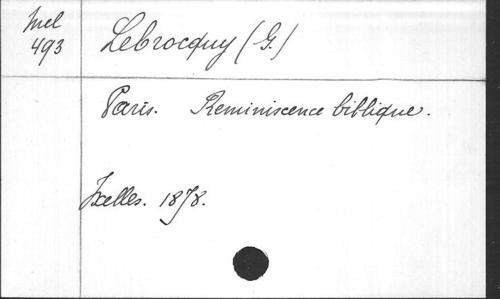 Mel
493
Lebrocquy (G.)
Paris. Reminiscence biblique.
Ixelles. 1878.